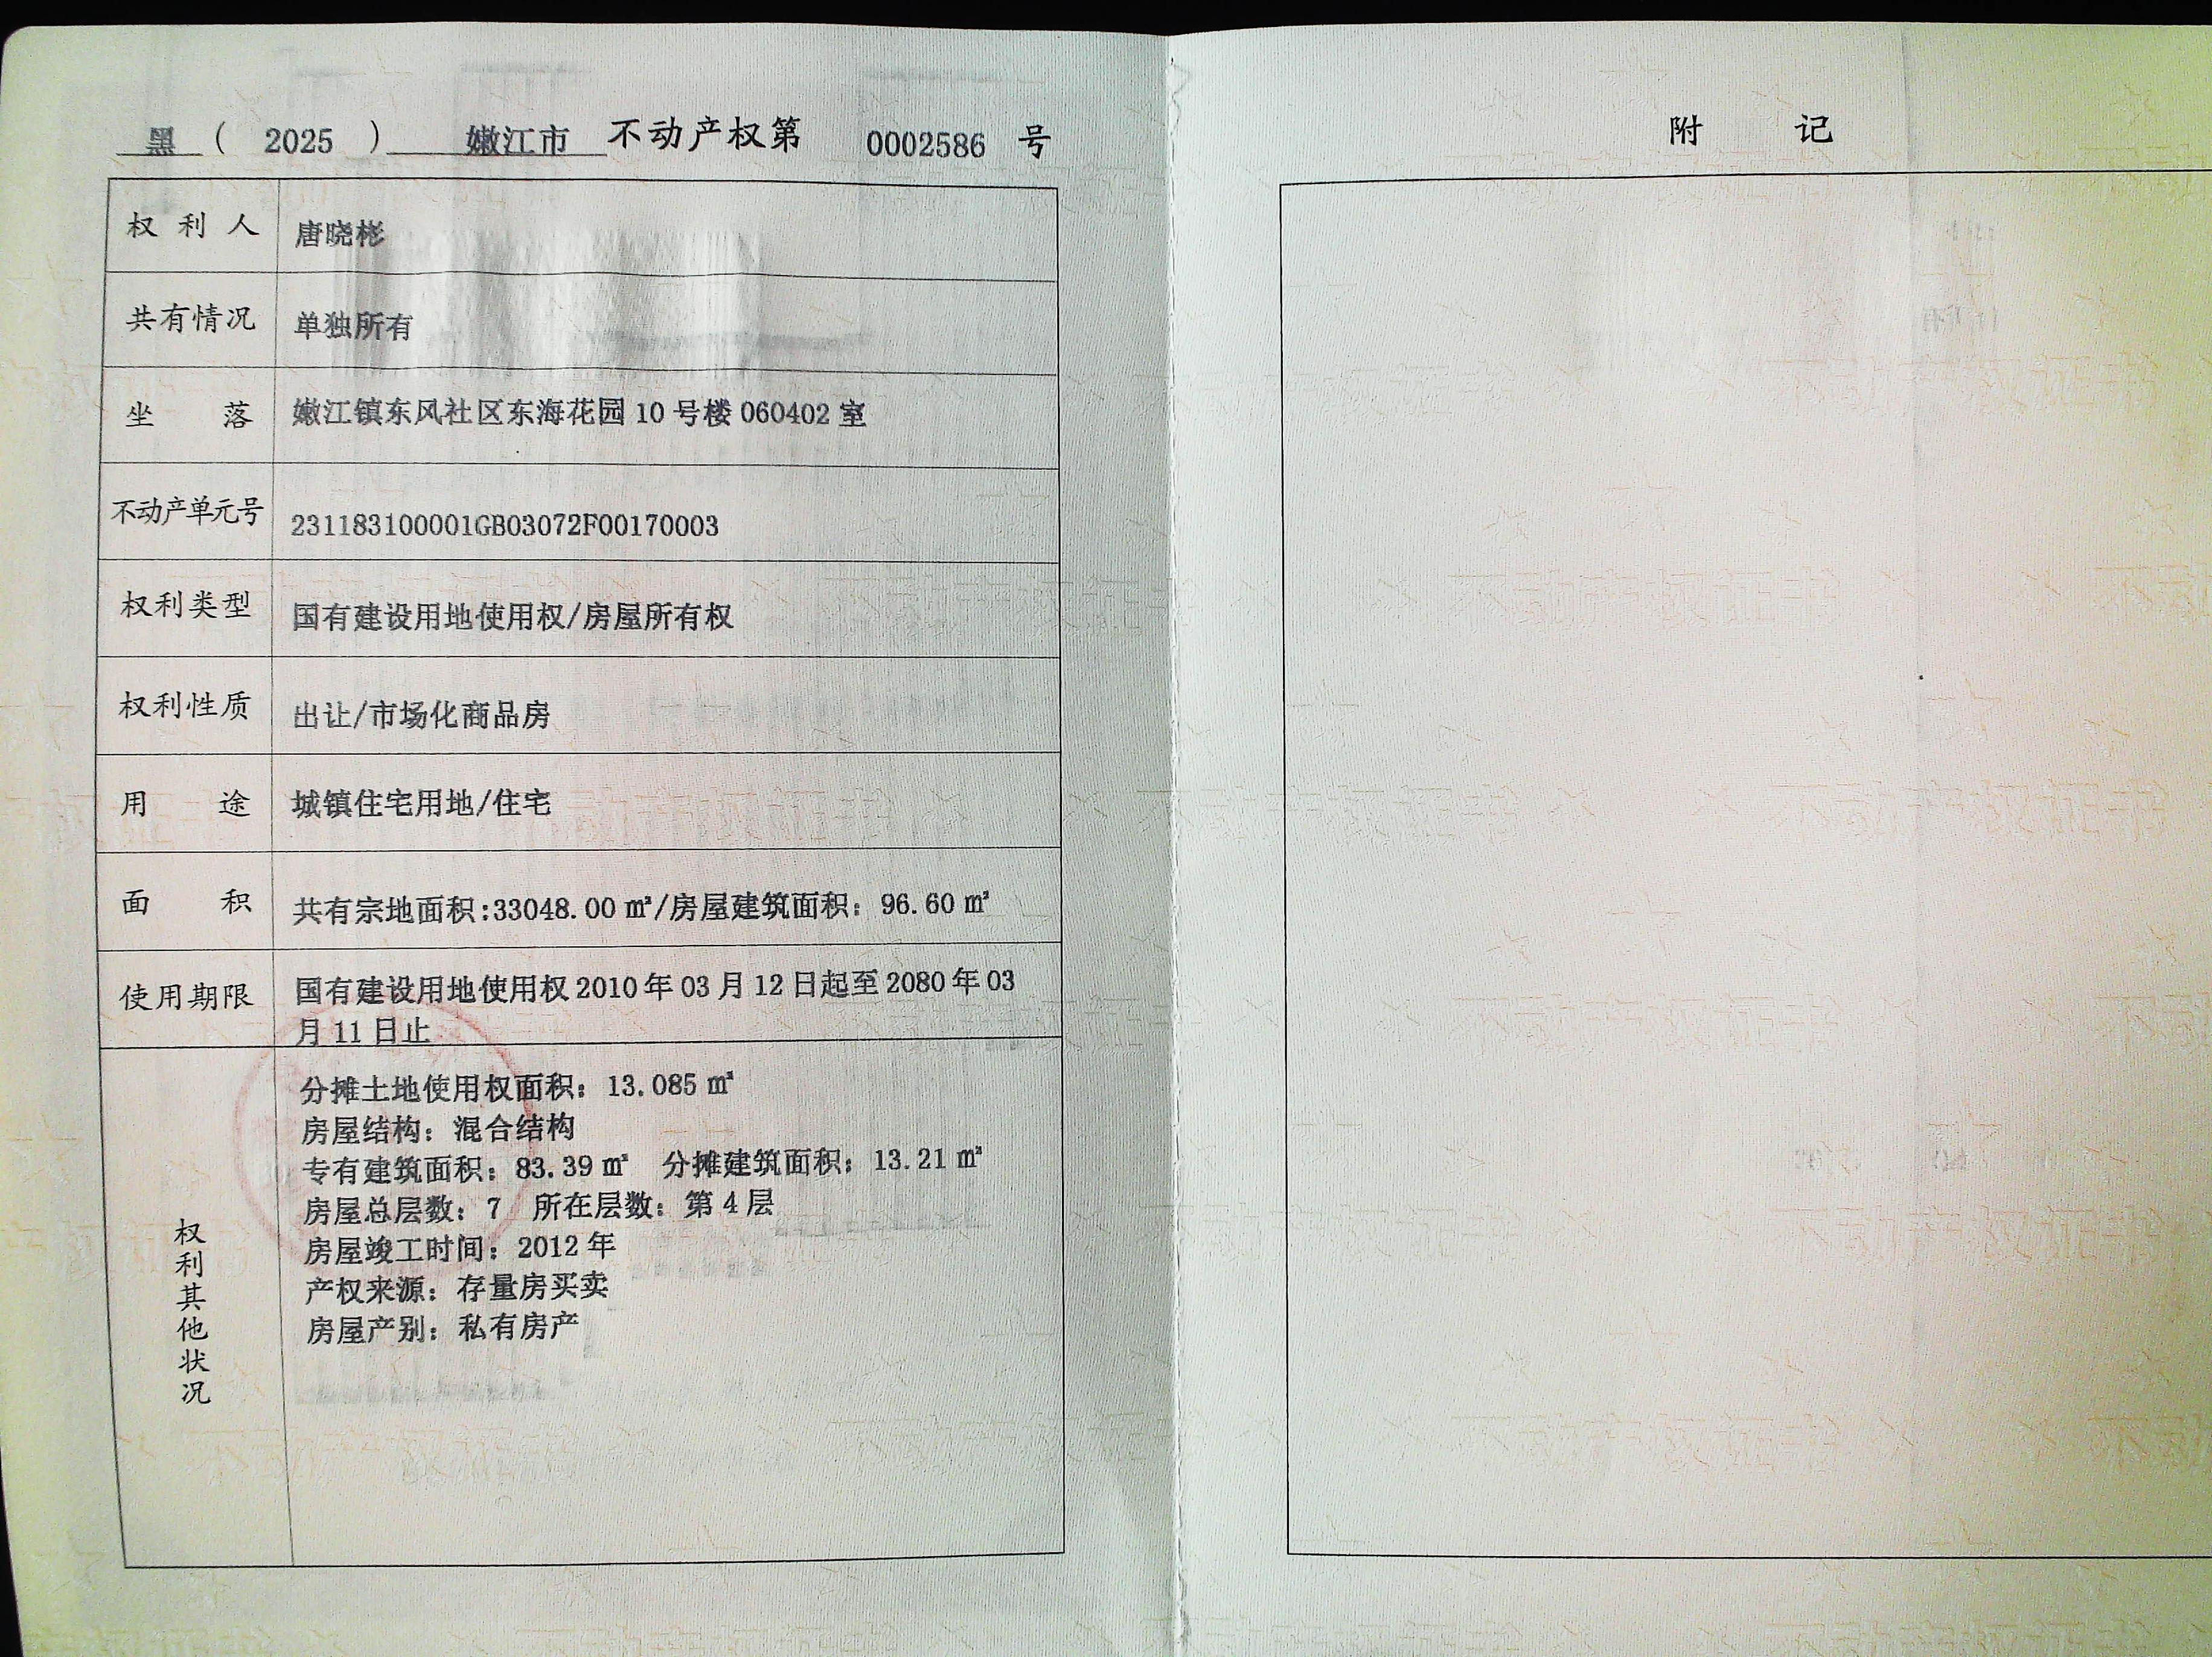 黑 ( 2025 ) 嫩江市 不动产权第 0002586 号
权利人 唐晓彬
共有情况 单独所有
坐落 嫩江镇东风社区东海花园 10 号楼 060402 室
不动产单元号 231183100001GB03072F00170003
权利类型 国有建设用地使用权/房屋所有权
权利性质 出让/市场化商品房
用途 城镇住宅用地/住宅
面积 共有宗地面积:33048.00 ㎡/房屋建筑面积: 96.60 ㎡
使用期限 国有建设用地使用权 2010 年 03 月 12 日起至 2080 年 03
月 11 日止
权利其他状况
分摊土地使用权面积: 13.085 ㎡
房屋结构: 混合结构
专有建筑面积: 83.39 ㎡ 分摊建筑面积: 13.21 ㎡
房屋总层数: 7 所在层数: 第 4 层
房屋竣工时间: 2012 年
产权来源: 存量房买卖
房屋产别: 私有房产
附记